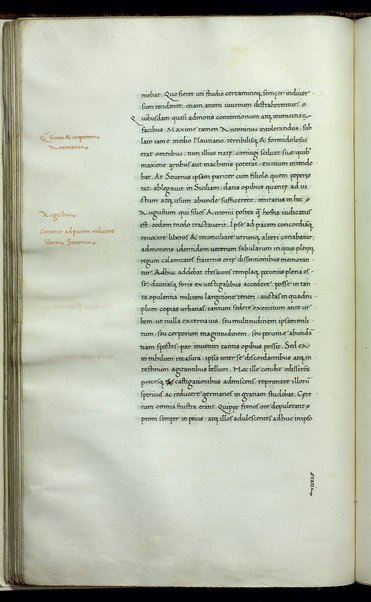 niebat. Quo fieret ut studio certaminũq; semper in diuer
sum tendente, etiam animi iuuenum distraherentur,
quibusdam quasi admonis contentionum atq; inimicitiaȝ
facibus. Maxime tamen Antoninus intolerandus, sub
lato iam e medio Plautiano, terribilisq; & formidolosus
erat omnibus, tum illius natȩ, coniugi scilicet suȩ quibꝰ
maxime artibus aut machinis poterat, exitium intende
bat. At Seuerus ipsam pariter cum filiolo quem pepere
rat, ablegauit in Siciliam, datis opibus quantȩ ad ui
ctum atq; usum abunde sufficerent, imitatus in hoc
Augustum qui filios Antonii postea q̃ hostis iudicatus
est, eodem modo tractauerit. Ipse ad pacem concordiãq;
reuocare liberos & reconciliare utrunq; alteri conabatur,
admonens identidem ueterum fabularum in quis plerũq;
regum calamitates fraternis ortȩ dissentionibus memoran
tur. Ad hȩc addebat thesauros templaq; pecuniis plena es
se, diuitiasq; foris ex uectigalibus accedere, posse in tan
ta opulentia militem largitione teneri, auctas in quadru
plum copias urbanas, tantum sedere exercitum ante ur
bem, ut nulla externa uis, seu multitudinem ipsam mili
tum, seu corporum magnitudinem, seu pecuniȩ abundã
tiam spectes, par inueniri tantis opibus posset. Sed ea
in nihilum recasura, ipsis inter se discordantibus atq; in
testinum agitantibus bellum. Hȩc ille condit edisserẽs
precesq; & castigationibus admiscens, reprimere illorũ
spiritus ac reducere germanos in gratiam studebat. Cȩte
rum omnia frustra erant. Quippe frenos ore depulerant
proni semper in peius, atq; illos adulescentes adhuc in ipso
Antoninus
Augustus
Conatur ad pacem reducere
liberos Seuerus